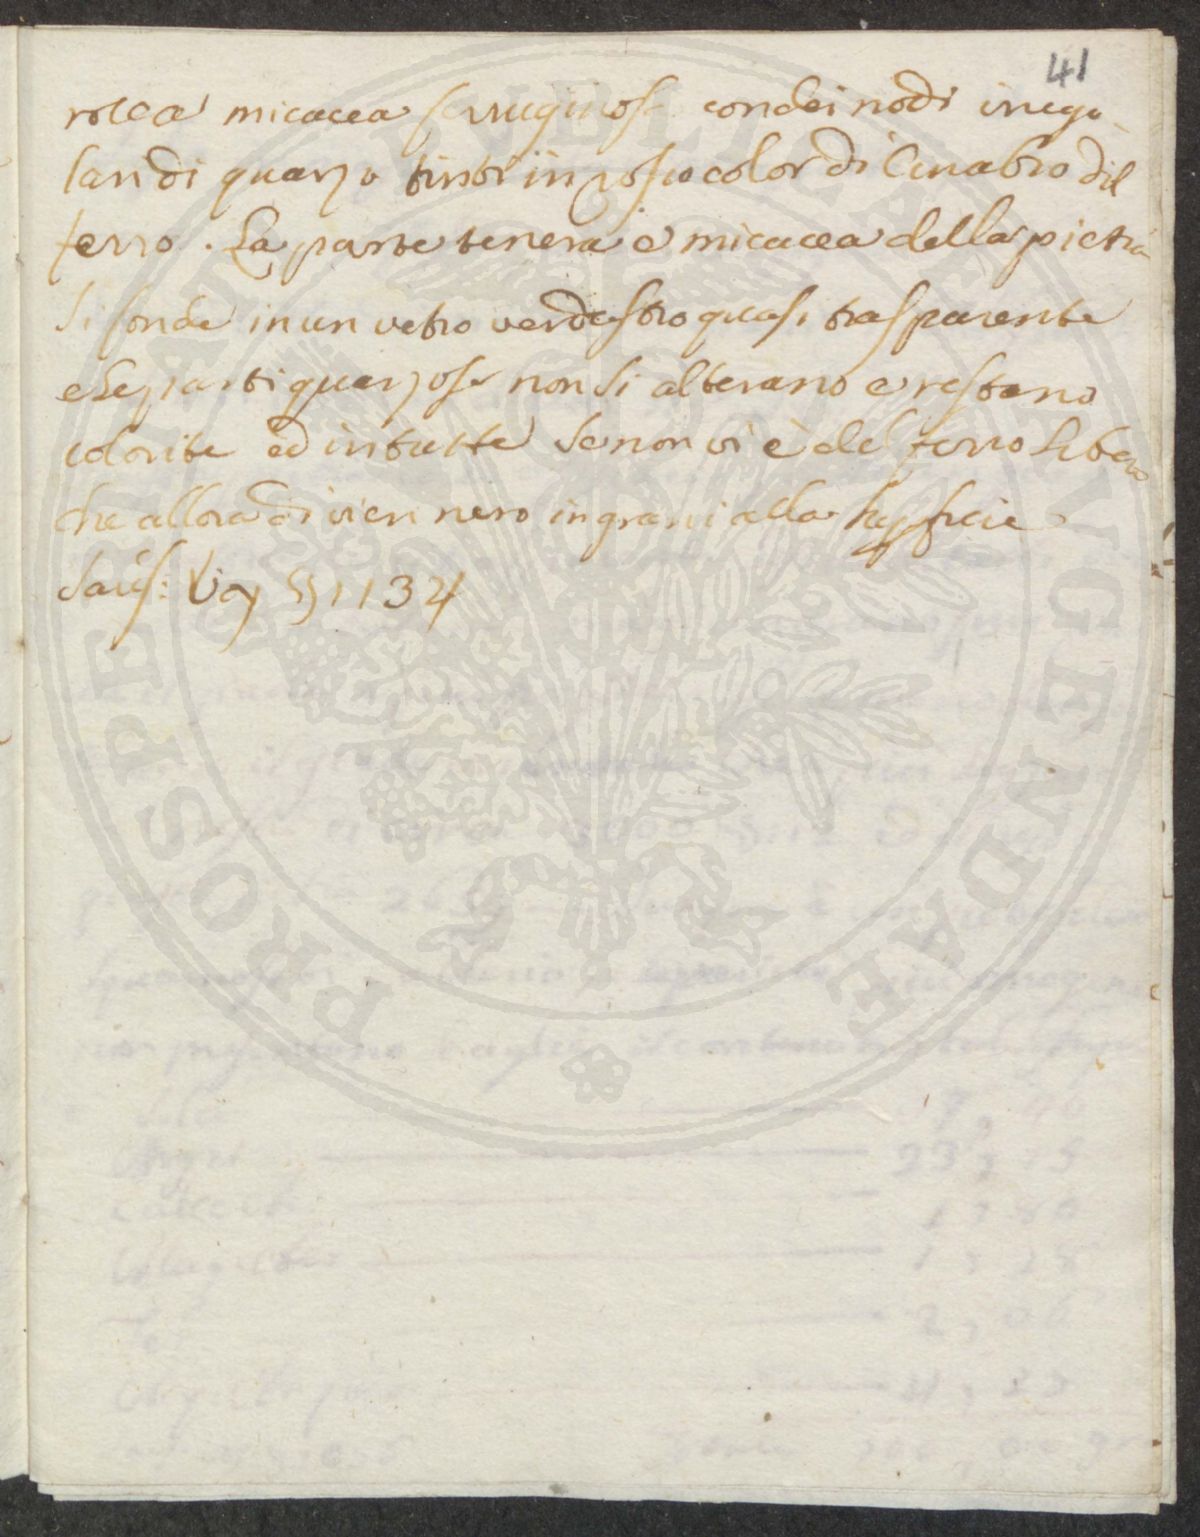 41
rocca micacea ferruginosa con dei nodi irrego-
lari di quarzo tinti in rosso color di Cinabro dal
ferro. La parte tenera e micacea della pietra
si fonde in un vetro verdastro quasi trasparente
e le parti quarzose non si alterano e restano
colorite ed intatte se non vi è del ferro libero
che allora divien nero in grani alla
Saus: Voy § 1134
PROSPERITATI PUBLICAE AUGENDAE